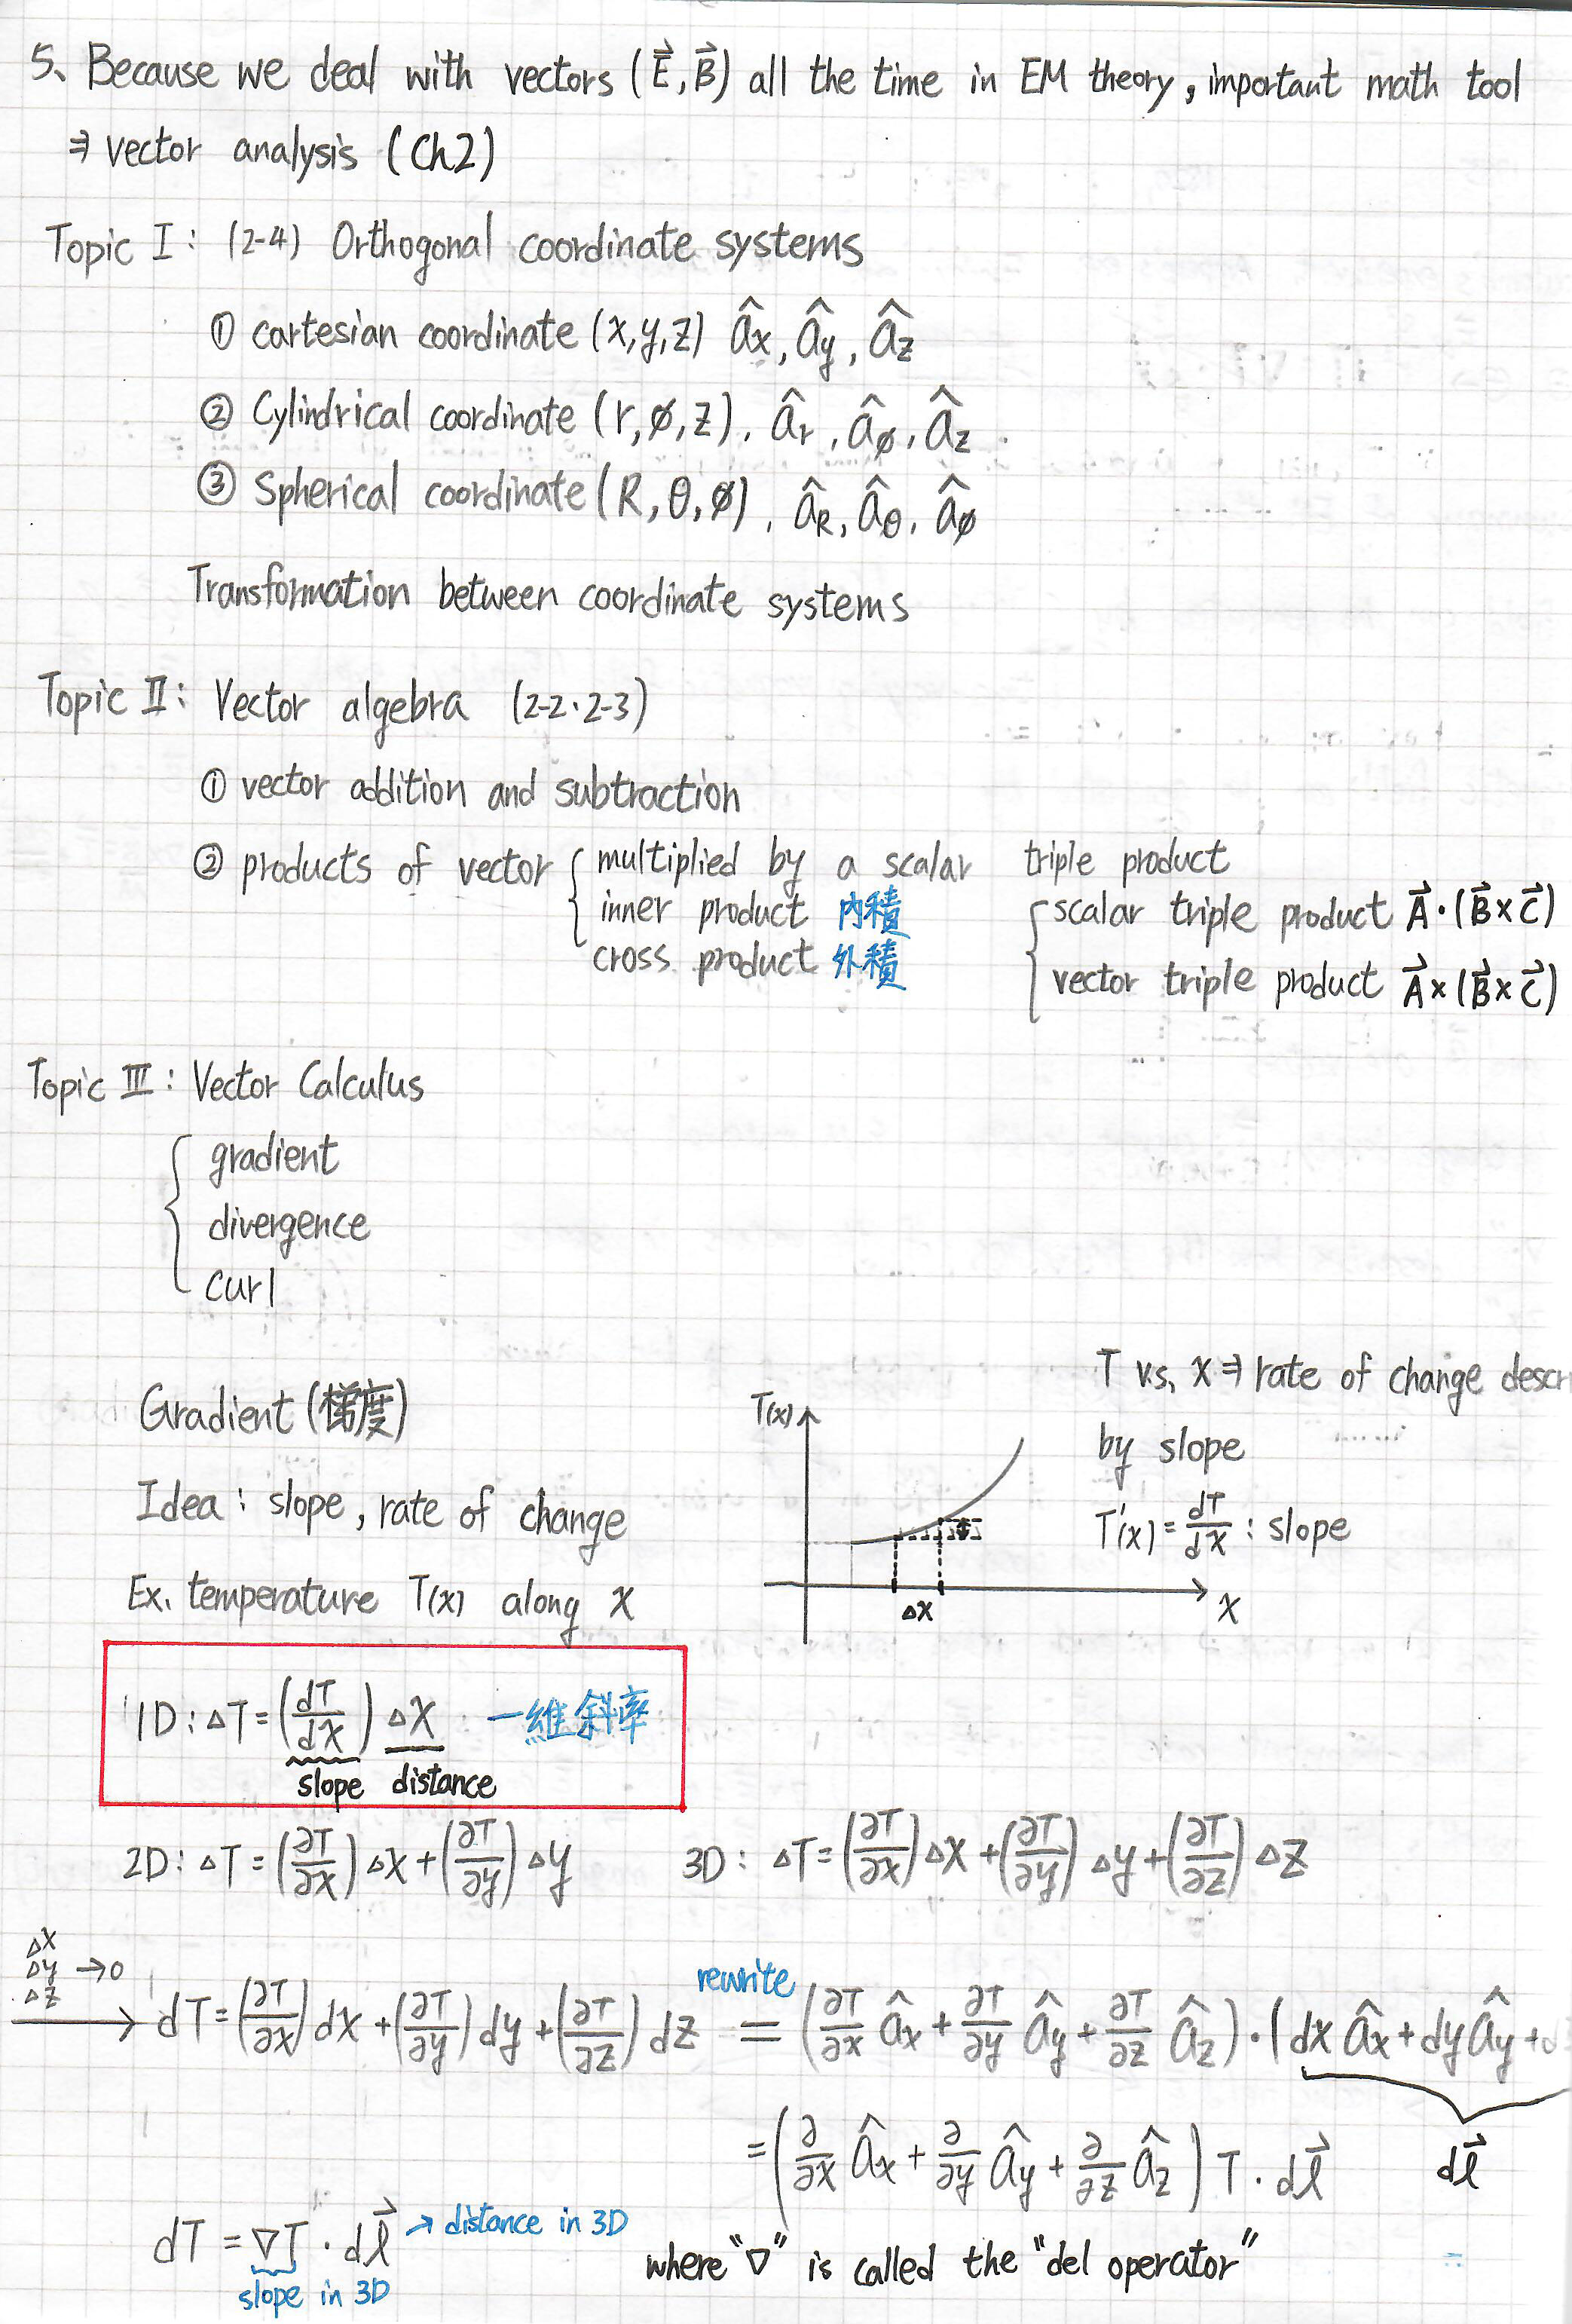 5、Because we deal with vectors (E⃗,B⃗) all the time in EM theory, important math tool
⇒ vector analysis (Ch2)
Topic I: (2-4) Orthogonal coordinate systems
① cartesian coordinate (x,y,z) âx, ây, âz
② Cylindrical coordinate (r,ø,z), âr, âø, âz
③ Spherical coordinate (R,θ,ø), âR, âθ, âø
Transformation between coordinate systems
Topic II: Vector algebra (2-2·2-3)
① vector addition and subtraction
② products of vector { multiplied by a scalar
inner product 內積
cross product 外積
triple product
{ scalar triple product A⃗·(B⃗×C⃗)
vector triple product A⃗×(B⃗×C⃗)
Topic III: Vector Calculus
{ gradient
divergence
curl
Gradient (梯度)
Idea: slope, rate of change
Ex. temperature T(x) along x
T(x)
Δx
x
T v.s. x ⇒ rate of change descr
by slope
T'(x) = dT/dx : slope
1D: ΔT = (dT/dx) Δx 一維斜率
slope distance
2D: ΔT = (∂T/∂x) Δx + (∂T/∂y) Δy
3D: ΔT = (∂T/∂x) Δx + (∂T/∂y) Δy + (∂T/∂z) Δz
Δx
Δy → 0
Δz
→ dT = (∂T/∂x) dx + (∂T/∂y) dy + (∂T/∂z) dz rewrite = (∂T/∂x âx + ∂T/∂y ây + ∂T/∂z âz) · (dx âx + dy ây +
dl⃗
= (∂/∂x âx + ∂/∂y ây + ∂/∂z âz) T · dl⃗
dT = ∇T · dl⃗ → distance in 3D
slope in 3D
where "∇" is called the "del operator"